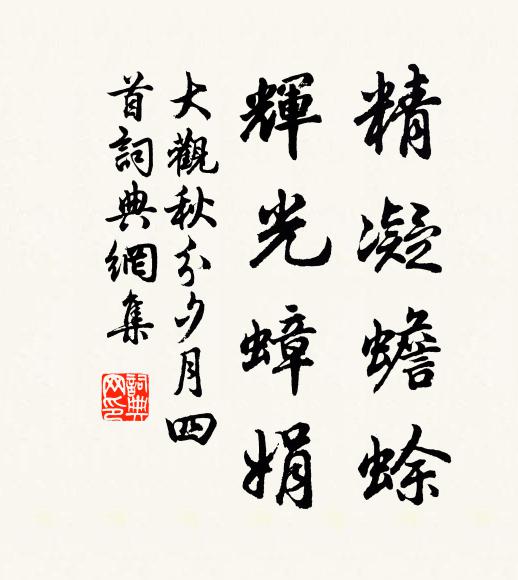 精凝蟾蜍
輝光蟑娟
大觀秋分夕月四
首詞典網集
詞典網印